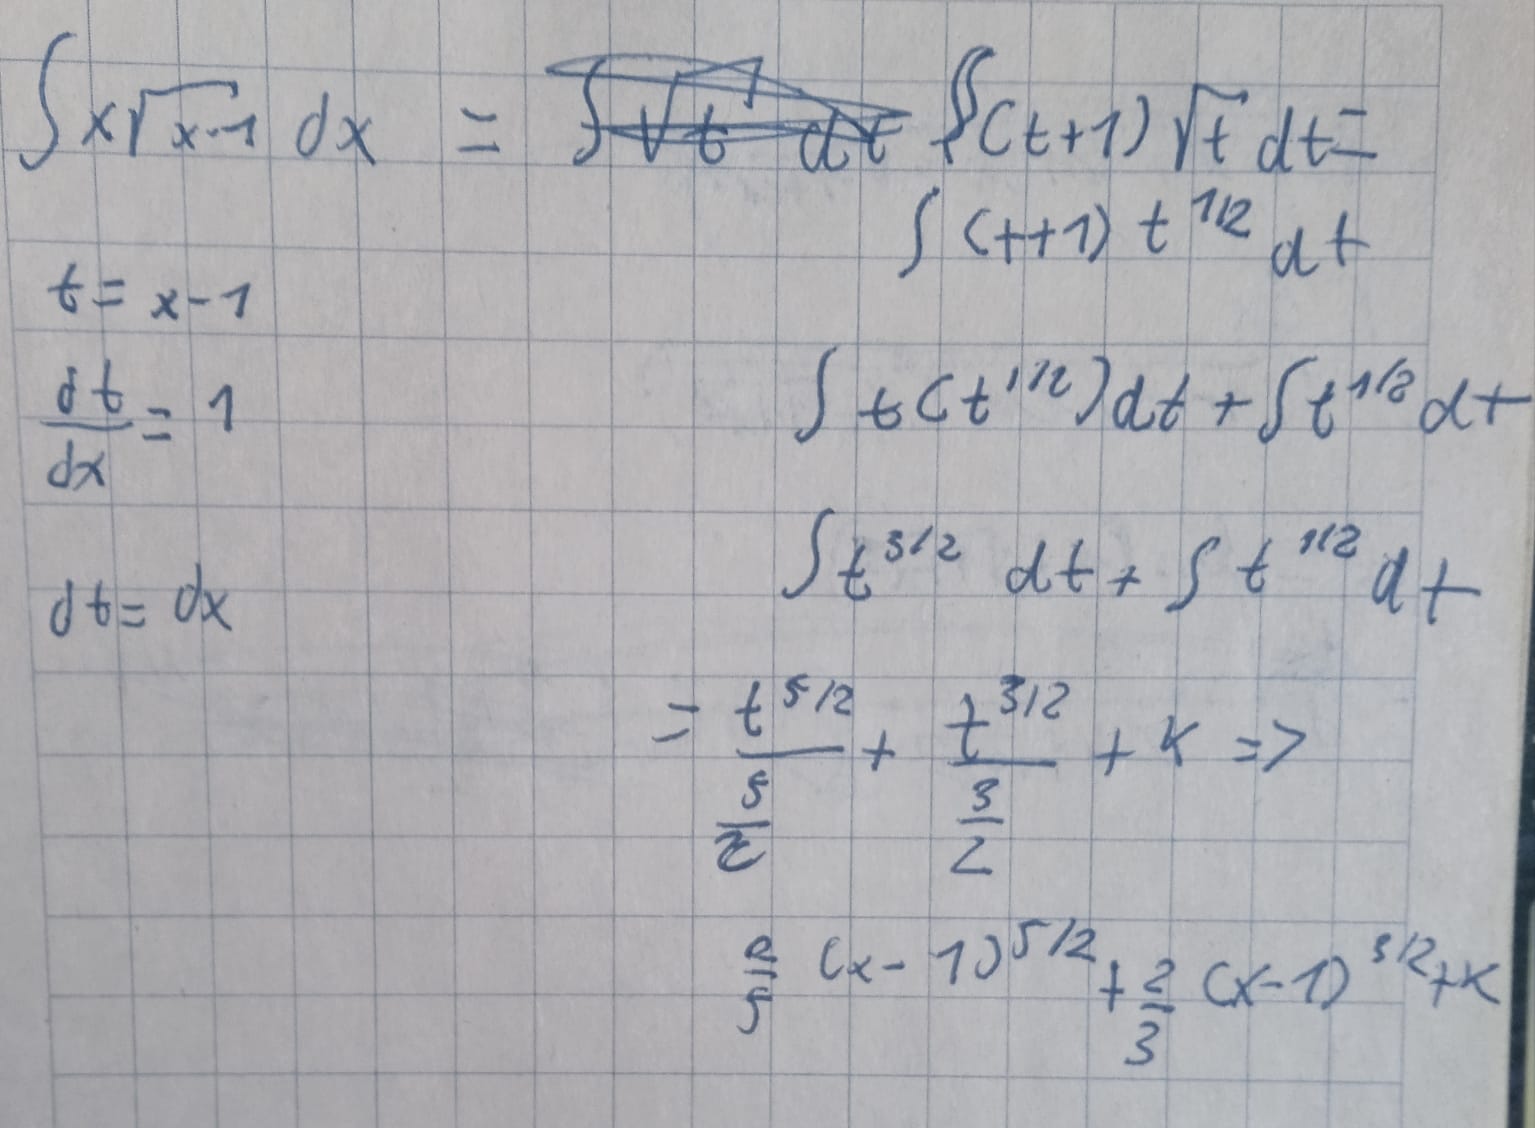 ∫ x√(x-1) dx = ∫√t dt ∫(t+1) √t dt =
∫ (t+1) t^1/2 dt
t = x-1
dt/dx = 1
∫ t(t^1/2) dt + ∫ t^1/2 dt
∫ t^3/2 dt + ∫ t^1/2 dt
dt = dx
= t^5/2 / (5/2) + t^3/2 / (3/2) + K =>
2/5 (x-1)^5/2 + 2/3 (x-1)^3/2 + K